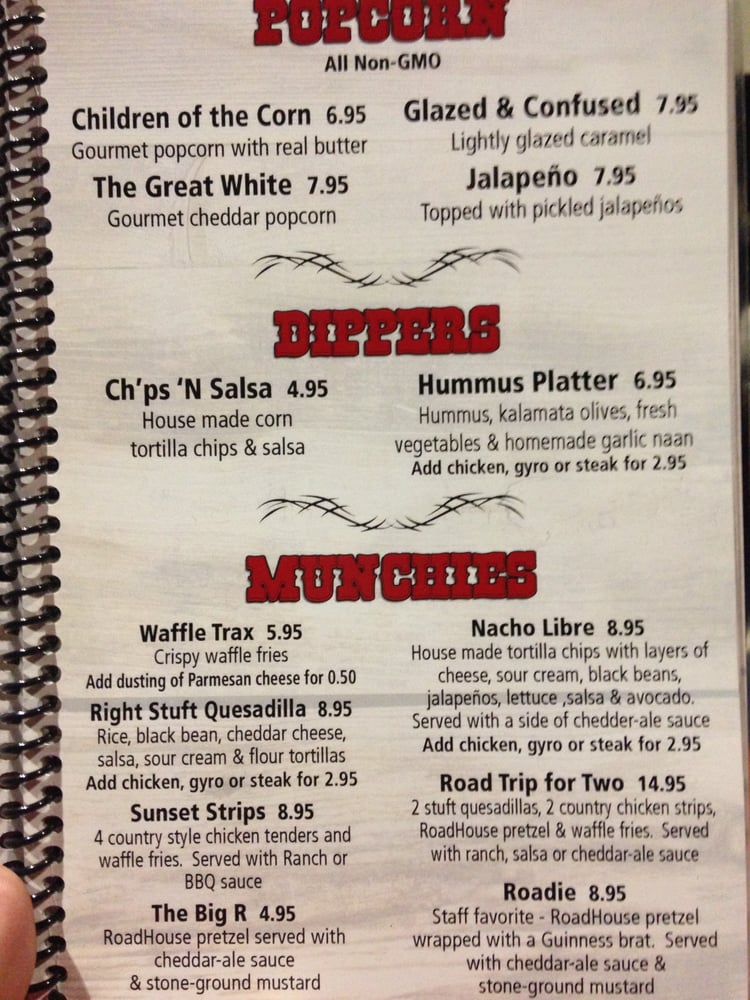 POPCORN
All Non-GMO
Children of the Corn 6.95
Gourmet popcorn with real butter
The Great White 7.95
Gourmet cheddar popcorn
Glazed & Confused 7.95
Lightly glazed caramel
Jalapeño 7.95
Topped with pickled jalapeños
DIPPERS
Ch'ps 'N Salsa 4.95
House made corn
tortilla chips & salsa
Hummus Platter 6.95
Hummus, kalamata olives, fresh
vegetables & homemade garlic naan
Add chicken, gyro or steak for 2.95
MUNCHIES
Waffle Trax 5.95
Crispy waffle fries
Add dusting of Parmesan cheese for 0.50
Right Stuft Quesadilla 8.95
Rice, black bean, cheddar cheese,
salsa, sour cream & flour tortillas
Add chicken, gyro or steak for 2.95
Sunset Strips 8.95
4 country style chicken tenders and
waffle fries. Served with Ranch or
BBQ sauce
The Big R 4.95
RoadHouse pretzel served with
cheddar-ale sauce
& stone-ground mustard
Nacho Libre 8.95
House made tortilla chips with layers of
cheese, sour cream, black beans,
jalapeños, lettuce ,salsa & avocado.
Served with a side of chedder-ale sauce
Add chicken, gyro or steak for 2.95
Road Trip for Two 14.95
2 stuft quesadillas, 2 country chicken strips,
RoadHouse pretzel & waffle fries. Served
with ranch, salsa or cheddar-ale sauce
Roadie 8.95
Staff favorite - RoadHouse pretzel
wrapped with a Guinness brat. Served
with cheddar-ale sauce &
stone-ground mustard